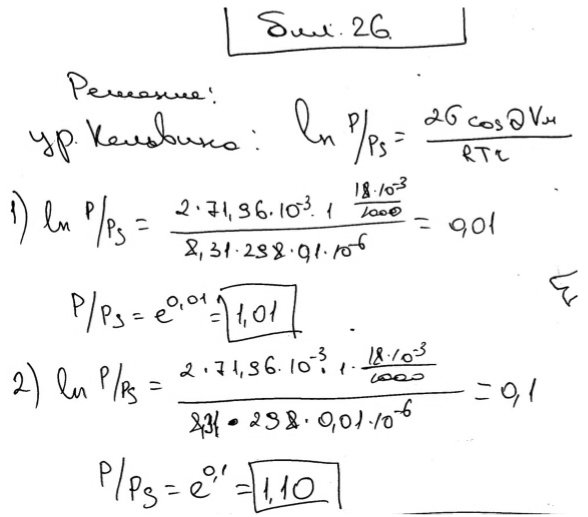 Бил. 26
Решение:
ур. Кельвина: ln P/Ps = 2б cosθ Vм / RTr
1) ln P/Ps = 2·71,96·10⁻³·1 18·10⁻³/1000 / 8,31·298·0,1·10⁻⁶ = 0,01
P/Ps = e^0,01 = 1,01
2) ln P/Ps = 2·71,96·10⁻³·1·18·10⁻³/1000 / 8,31·298·0,01·10⁻⁶ = 0,1
P/Ps = e^0,1 = 1,10